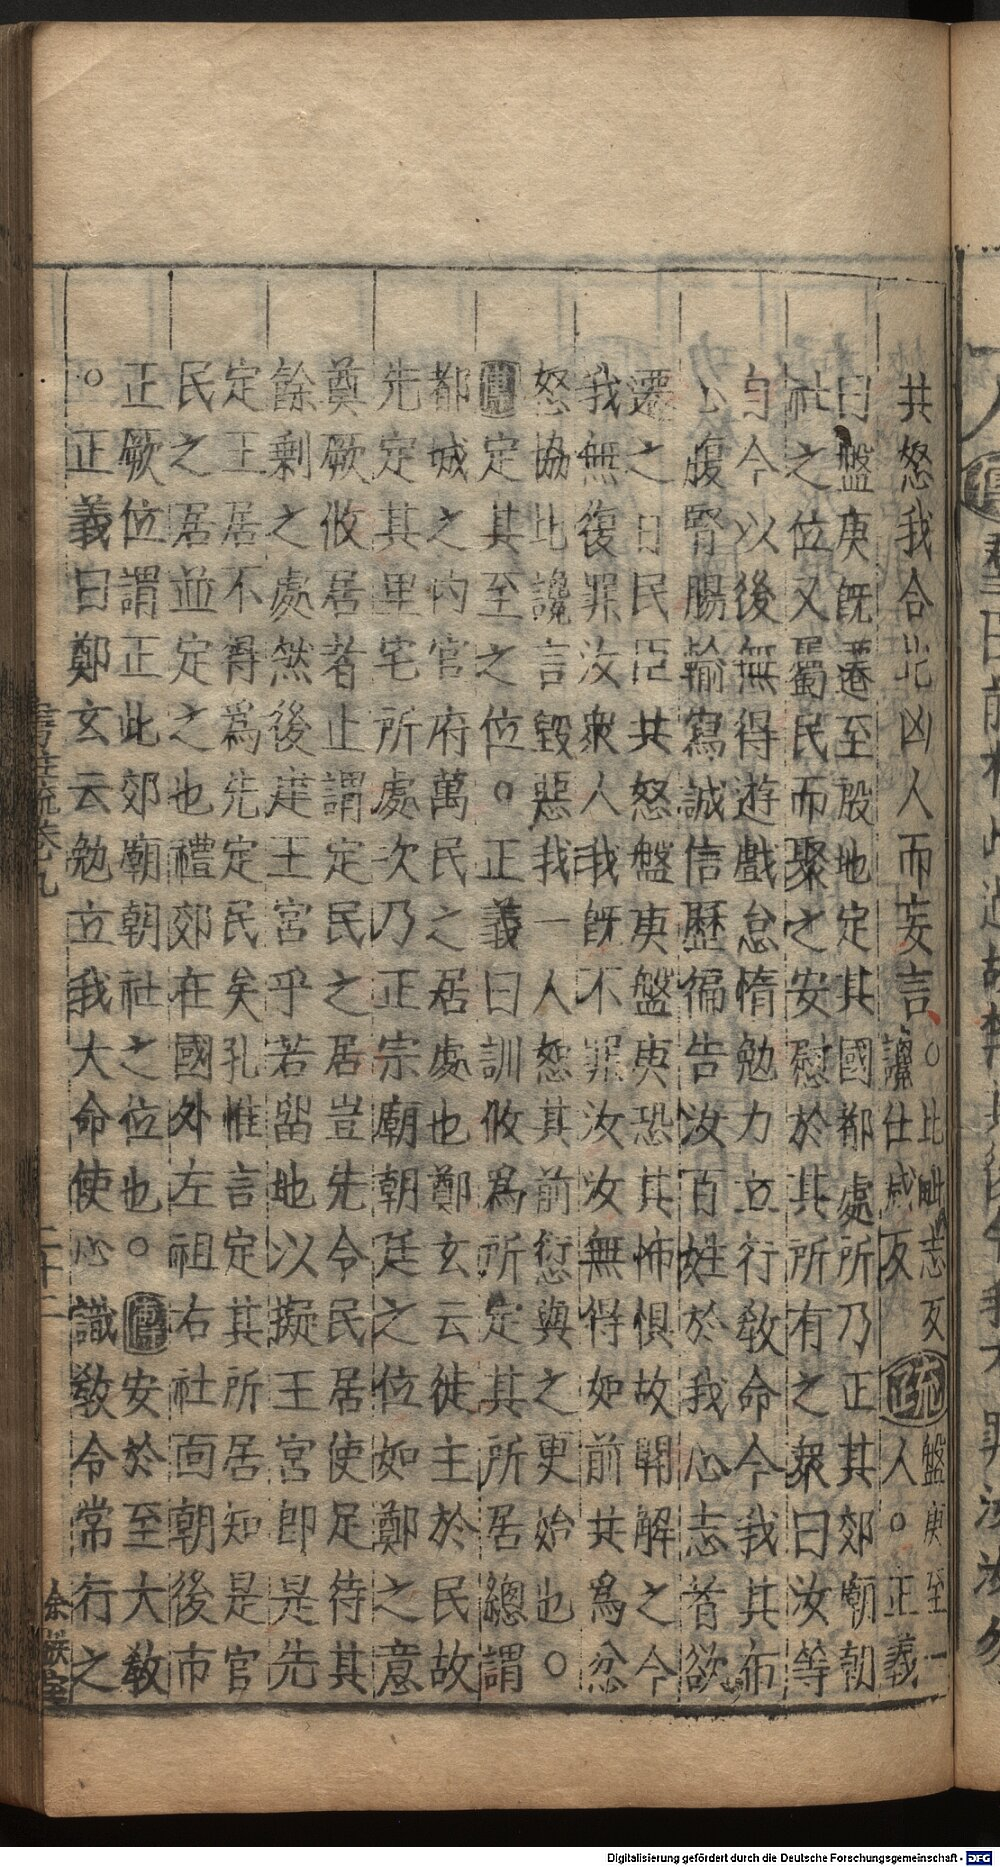 共怒我合比凶人而妄言○比毗志反讒仕咸反疏盤庚至一人○正義
曰盤庚既遷至殷地定其國都處所乃正其郊廟朝
社之位又屬民而聚之安慰於其所有之衆曰汝等
自今以後無得遊戲怠惰勉力立行教命今我其布
心腹腎腸輸寫誠信歷徧告汝百姓於我心志者欲
遷之日民臣共怒盤庚盤庚恐其怖懼故開解之今
我無復罪汝衆人我旣不罪汝汝無得如前共爲忿
怒協比讒言毀惡我一人恕其前愆與之更始也○
傳定其至之位○正義曰訓攸爲所定其所居總謂
都城之内官府萬民之居處也鄭玄云徙主於民故
先定其里宅所處次乃正宗廟朝廷之位如鄭之意
奠厥攸居者止謂定民之居豈先令民居使足待其
餘剩之處然後建王宮乎若留地以擬王宮卽是先
定王居不得爲先定民矣孔惟言定其所居知是官
民之居並定之也禮郊在國外左祖右社面朝後市
正厥位謂正此郊廟朝社之位也○傳安於至大教
○正義曰鄭玄云勉立我大命使心識教令常行之
書註疏卷九 二十二
Digitalisierung gefördert durch die Deutsche Forschungsgemeinschaft - DFG